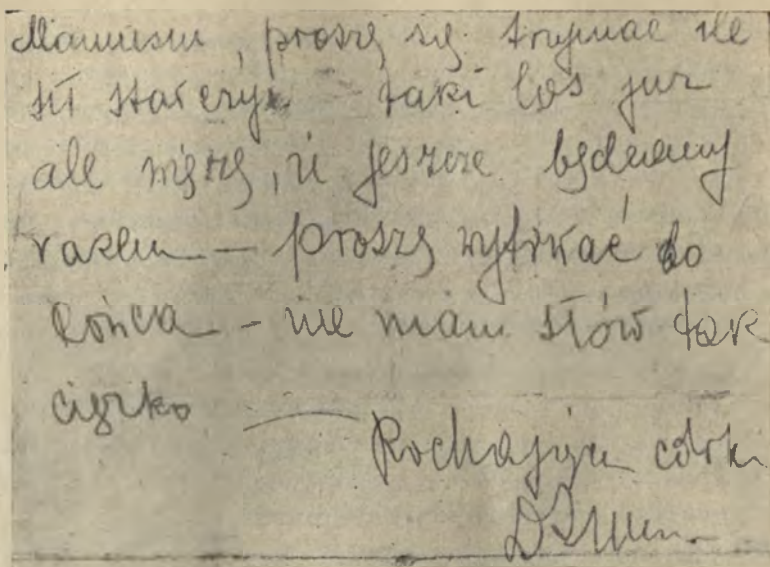 Mamusiu, proszę się trzymać ile
sił starczy – taki los już
ale wierzę, iż jeszcze będziemy
razem — proszę wytrwać do
końca – nie mam słów tak
ciężko —
Kochająca córka